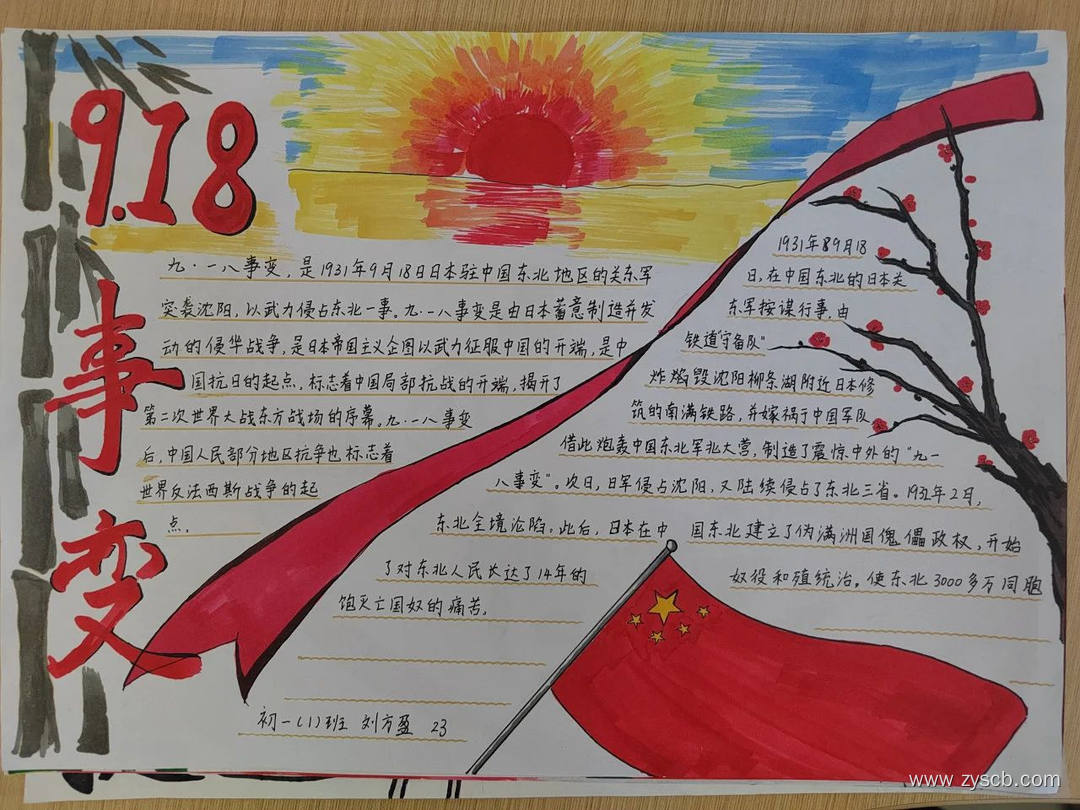 9.18
事
变
九·一八事变，是1931年9月18日日本驻中国东北地区的关东军
突袭沈阳，以武力侵占东北一事。九·一八事变是由日本蓄意制造并发
动的侵华战争，是日本帝国主义企图以武力征服中国的开端，是中
国抗日的起点，标志着中国局部抗战的开端，揭开了
第二次世界大战东方战场的序幕。九·一八事变
后，中国人民部分地区抗争也标志着
世界反法西斯战争的起
点。
1931年89月18
日，在中国东北的日本关
东军按谋行事，由
铁道"守备队"
炸焰毁沈阳柳条湖附近日本修
筑的南满铁路，并嫁祸于中国军队
借此炮轰中国东北军北大营，制造了震惊中外的"九一
八事变"。次日，日军侵占沈阳，又陆续侵占了东北三省。1932年2月，
东北全境沦陷。此后，日本在中 国东北建立了伪满洲国傀儡政权，开始
了对东北人民长达了14年的 奴役和殖统治。使东北3000多万同胞
饱灭亡国奴的痛苦。
初一(1)班 刘方盈 23
www.zyscb.com